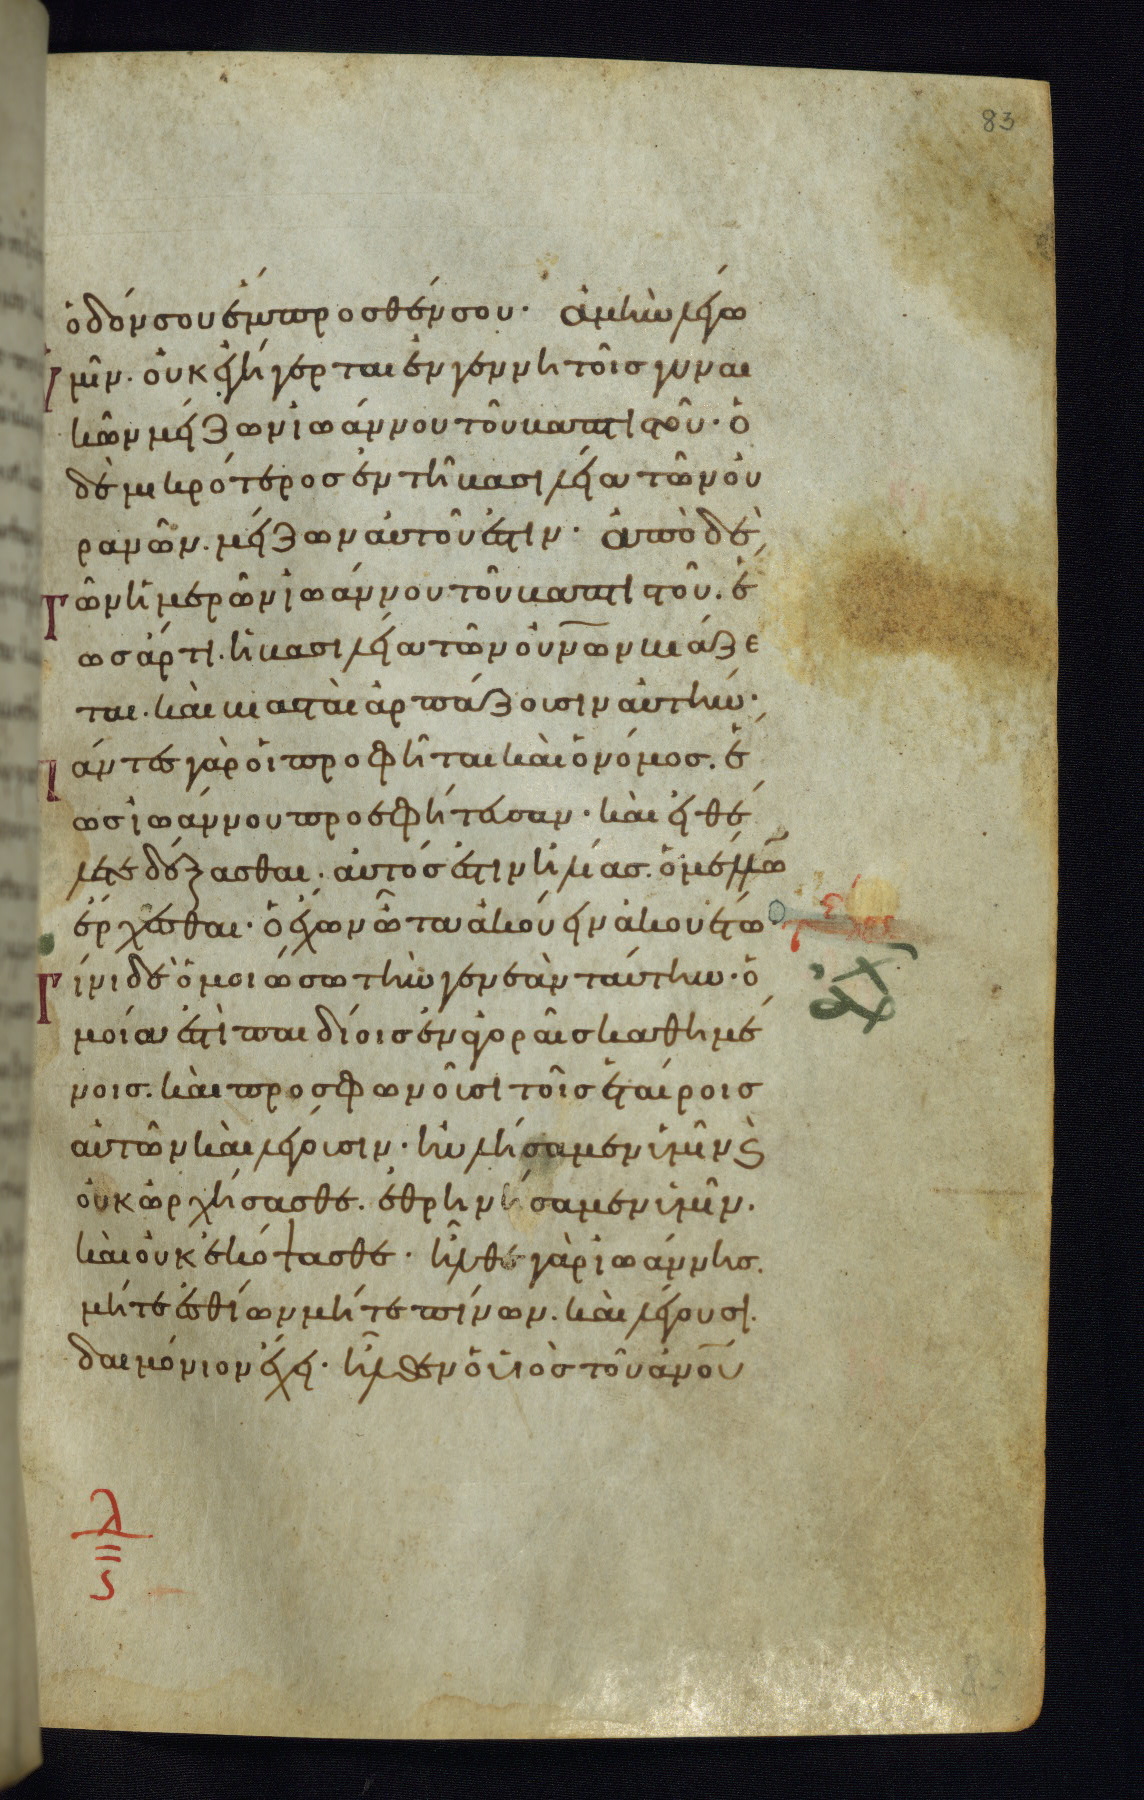 83
ὁδόν σου ἔμπροσθέν σου· ἀμὴν λέγω
ὑμῖν. οὐκ ἐγήγερται ἐν γεννητοῖς γυναι
κῶν μείζων ἰωάννου τοῦ βαπτιστοῦ· ὁ
δὲ μικρότερος ἐν τῆ βασιλεία τῶν οὐ
ρανῶν. μείζων αὐτοῦ ἐστιν· ἀπὸ δὲ
τῶν ἡμερῶν ἰωάννου τοῦ βαπτιστοῦ. ἕ
ως ἄρτι. ἡ βασιλεία τῶν οὐνῶν βιάζε
ται. καὶ βιασταὶ ἁρπάζουσιν αὐτήν·
πάντες γὰρ οἱ προφῆται καὶ ὁ νόμος. ἕ
ως ἰωάννου προεφήτευσαν· καὶ εἰ θέ
λετε δέξασθαι. αὐτός ἐστιν ἡλίας. ὁ μέλλων
ἔρχεσθαι· ὁ ἔχων ὦτα ἀκούειν ἀκουέτω·
τίνι δὲ ὁμοιώσω τὴν γενεὰν ταύτην· ὁ
μοία ἐστὶ παιδίοις ἐν ἀγοραῖς καθημέ
νοις. καὶ προσφωνοῦσι τοῖς ἑταίροις
αὐτῶν καὶ λέγουσιν· ηὐλήσαμεν ὑμῖν ϗ
οὐκ ὠρχήσασθε. ἐθρηνήσαμεν ὑμῖν.
καὶ οὐκ ἐκόψασθε· ἦλθε γὰρ ἰωάννης.
μήτε ἐσθίων μήτε πίνων. καὶ λέγουσι.
δαιμόνιον ἔχει· ἦλθεν ὁ υἱὸς τοῦ ἀνου
λ
ς